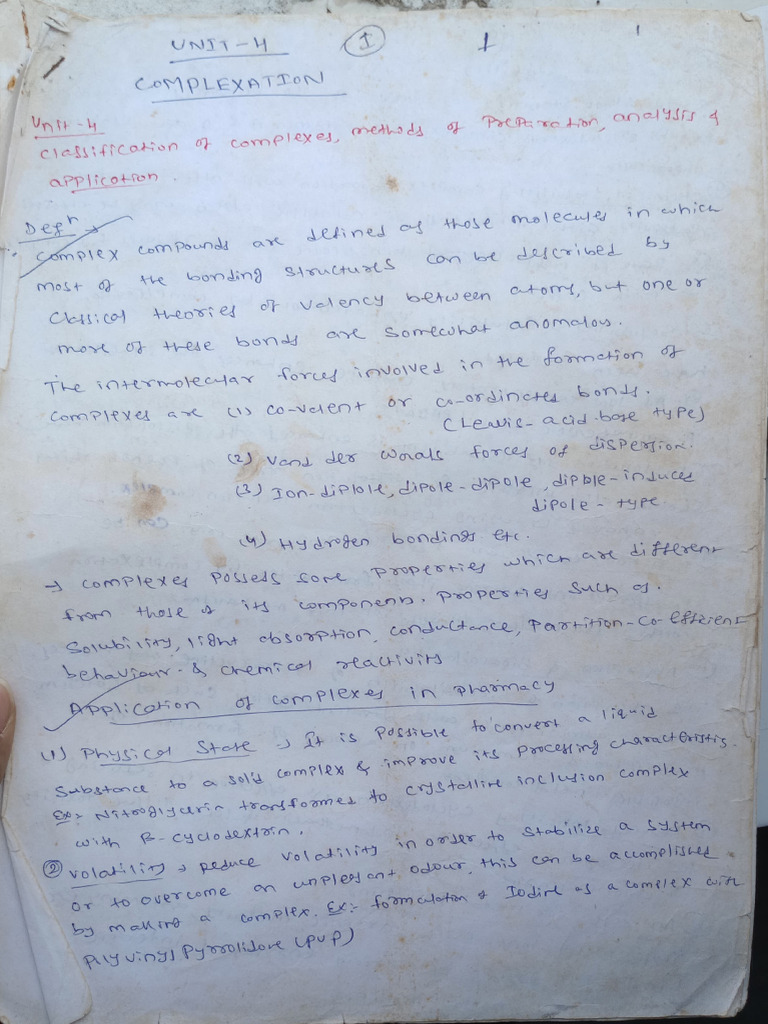 UNIT-4 1 1
COMPLEXATION
Unit-4
Classification of complexes, methods of Preparation, analysis &
application.
Defn →
Complex compounds are defined as those molecules in which
most of the bonding structures can be described by
Classical theories of Valency between atoms, but one or
more of these bonds are somewhat anomalous.
The intermolecular forces involved in the formation of
complexes are (1) co-valent or co-ordinated bonds.
(Lewis-acid-base type)
(2) Vand der waals forces of dispersion.
(3) Ion-diplole, dipole-dipole, dipole-induces
dipole-type.
(4) Hydrogen bondings etc.
→ complexes possess some properties which are different
from those of its components. properties such as.
Solubility, light absorption, conductance, partition-co-efficient
behaviour & chemical reactivity
Application of complexes in pharmacy
(1) Physical State → It is possible to convert a liquid
Substance to a solid complex & improve its processing characteristis.
Ex:- Nitroglycerin transformed to crystalline inclusion complex
with B-cyclodextrin.
② Volatility → Reduce volatility in order to stabilize a system
or to overcome an unplesant odour, this can be accomplished
by making a complex. Ex:- formulation of Iodine as a complex with
Plyvinyl Pyrrolidone (PVP)